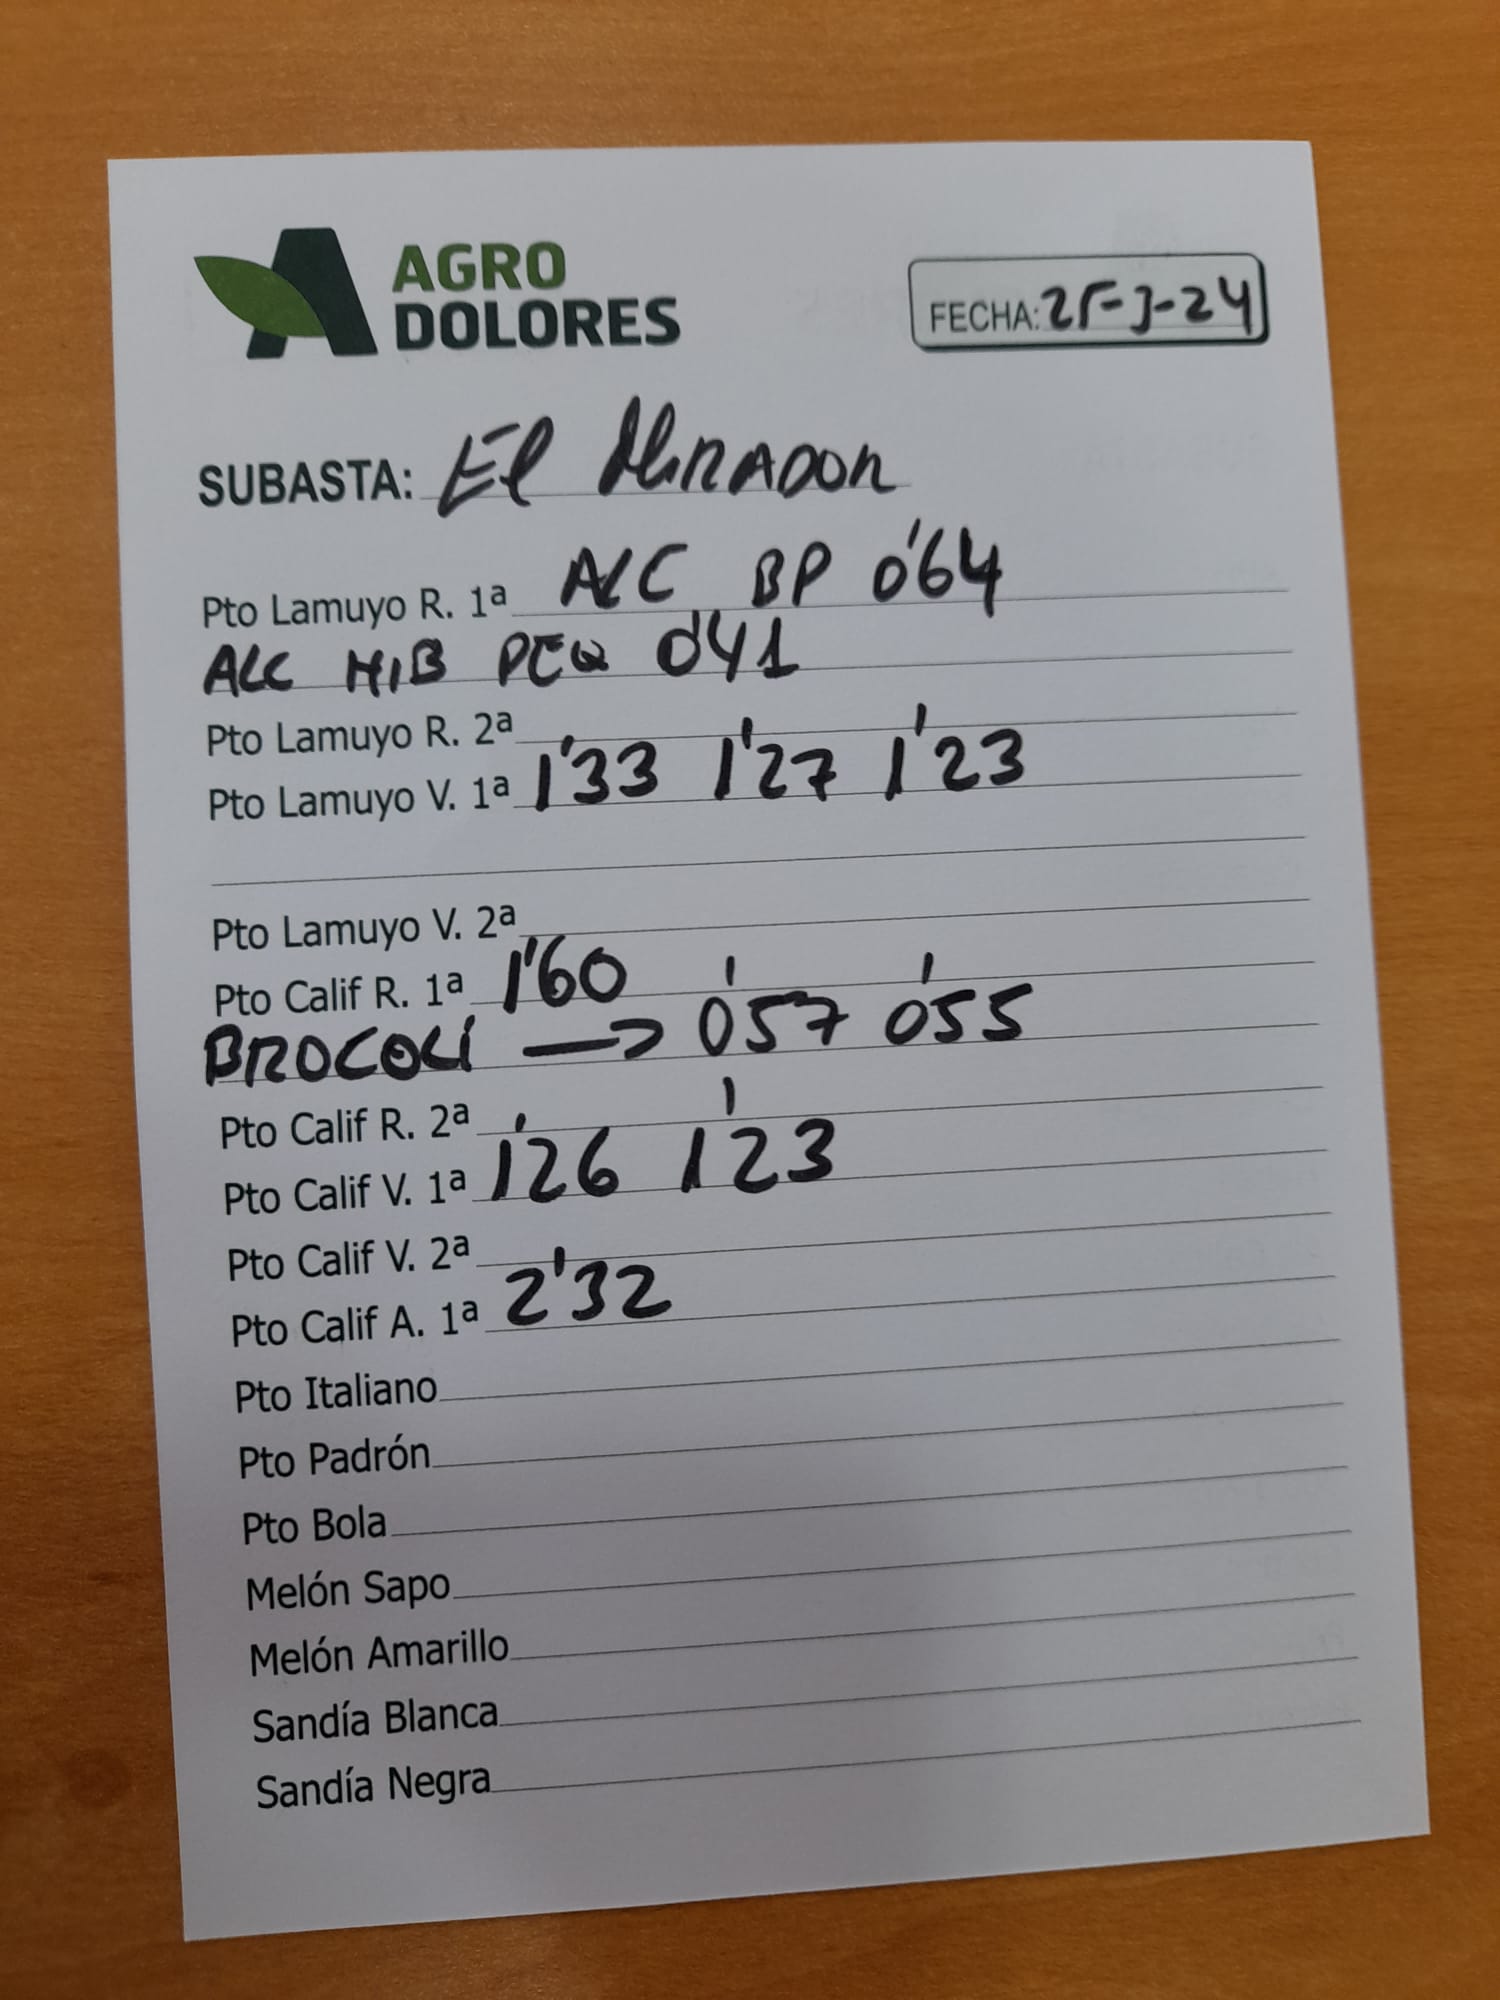 AGRO
DOLORES
FECHA: 25-3-24
SUBASTA: El MIRADOR
Pto Lamuyo R. 1ª ALC BP 0'64
ALC HIB PEQ 0'41
Pto Lamuyo R. 2ª
Pto Lamuyo V. 1ª 1'33 1'27 1'23
Pto Lamuyo V. 2ª
Pto Calif R. 1ª 1'60
BROCOLI → 0'57 0'55
Pto Calif R. 2ª
Pto Calif V. 1ª 1'26 1'23
Pto Calif V. 2ª
Pto Calif A. 1ª 2'32
Pto Italiano
Pto Padrón
Pto Bola
Melón Sapo
Melón Amarillo
Sandía Blanca
Sandía Negra